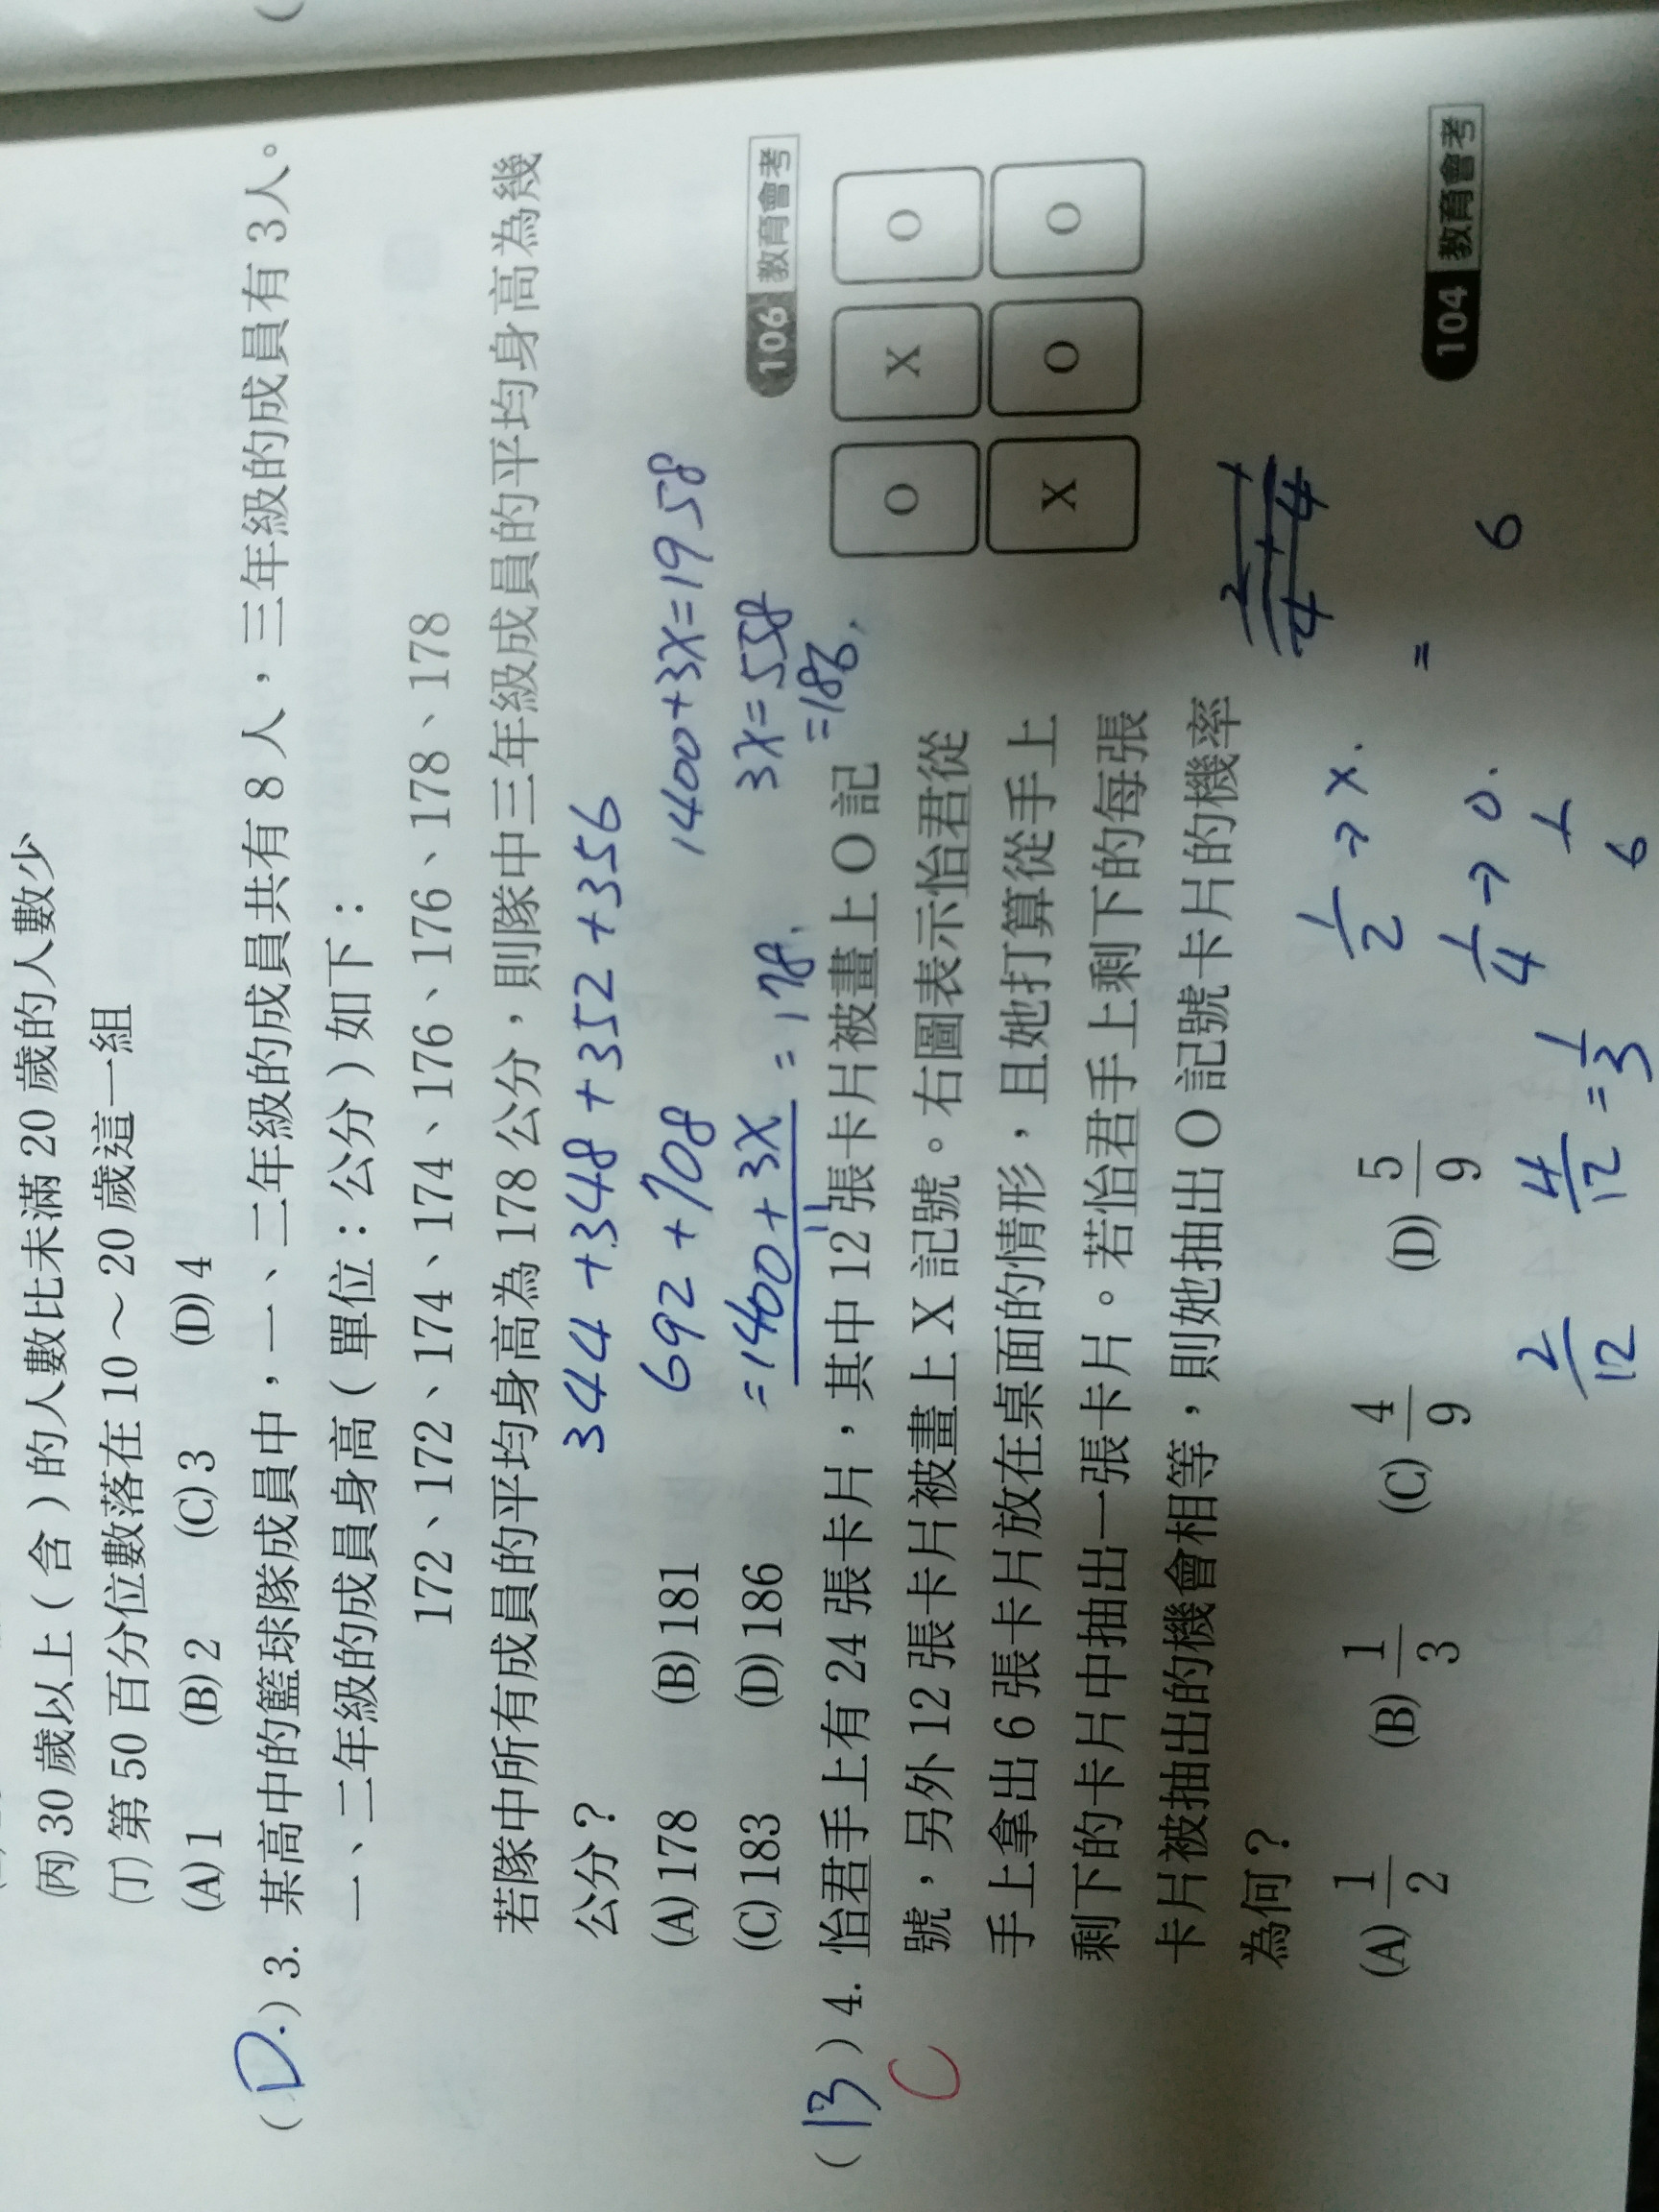 (丙) 30 歲以上(含)的人數比未滿 20 歲的人數少
(丁) 第 50 百分位數落在 10 ～ 20 歲這一組
(A) 1 (B) 2 (C) 3 (D) 4
( D. ) 3. 某高中的籃球隊成員中，一、二年級的成員共有 8 人，三年級的成員有 3 人。
一、二年級的成員身高(單位：公分)如下：
172、172、174、174、176、176、178、178
若隊中所有成員的平均身高為 178 公分，則隊中三年級成員的平均身高為幾
公分？
344 + 348 + 352 + 356
(A) 178 (B) 181
692 + 708
1400+3X=1958
(C) 183 (D) 186
=1400+3X
11
=178.
3X=558
=186.
106 教育會考
( B ) 4. 怡君手上有 24 張卡片，其中 12 張卡片被畫上 O 記
C
號，另外 12 張卡片被畫上 X 記號。右圖表示怡君從
手上拿出 6 張卡片放在桌面的情形，且她打算從手上
剩下的卡片中抽出一張卡片。若怡君手上剩下的每張
卡片被抽出的機會相等，則她抽出 O 記號卡片的機率
為何？
O X O
X O O
(A) 1/2 (B) 1/3 (C) 4/9 (D) 5/9
1/2 → X.
1/4 → O.
=
6
2/12 4/12 = 1/3
1
6
104 教育會考